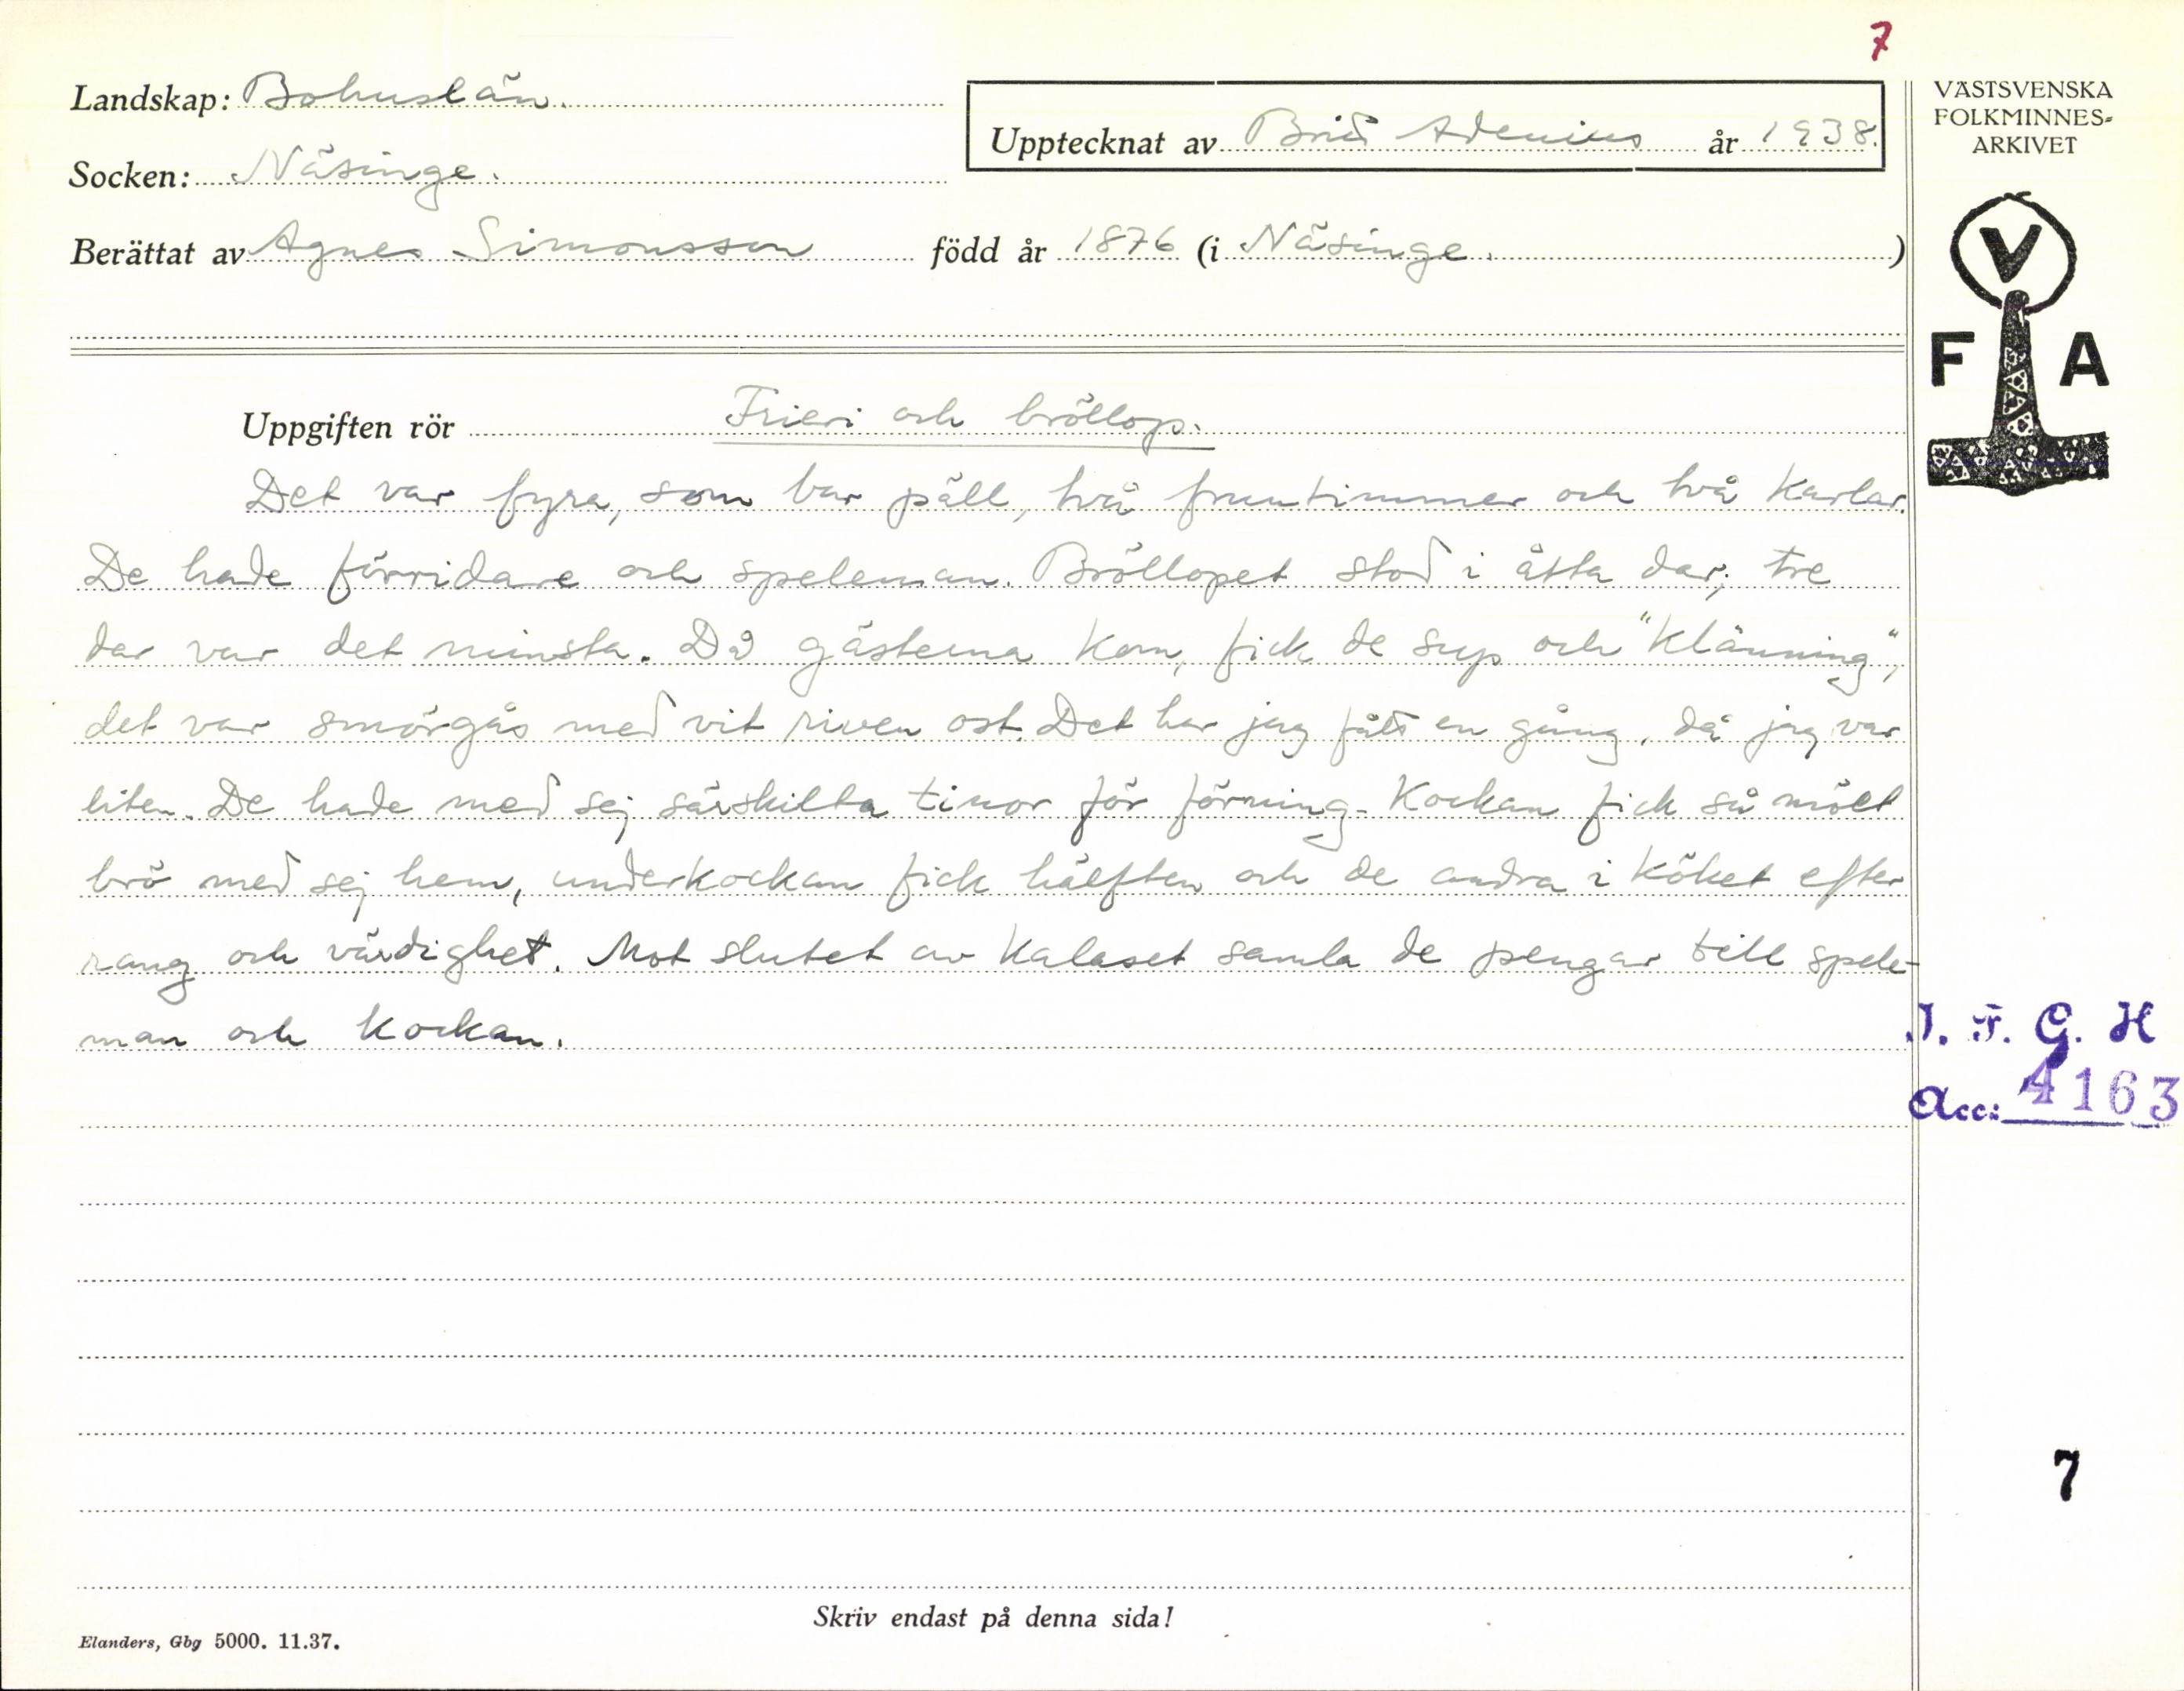 7
Landskap: Bohuslän.
Upptecknat av Brit Adenius år 1938.
Socken: Näsinge.
Berättat av Agnes Simonsson född år 1876 (i Näsinge.)
VÄSTSVENSKA
FOLKMINNES-
ARKIVET
V
F A
Uppgiften rör Frieri och bröllop.
Det var fyra, som bar päll, två fruntimmer och två karlar.
De hade förridare och speleman. Bröllopet stod i åtta dar, tre
dar var det minsta. Då gästerna kom, fick de sup och "klänning",
det var smörgås med vit riven ost. Det har jag fått en gång, då jag var
liten. De hade med sej särskilta tinor för förning. Kockan fick så möet
brö med sej hem, underkockan fick hälften och de andra i köket efter
rang och värdighet. Mot slutet av kalaset samla de pengar till spele-
man och kockan.
I. F. G. H
Acc: 4163
7
Skriv endast på denna sida!
Elanders, Gbg 5000. 11.37.